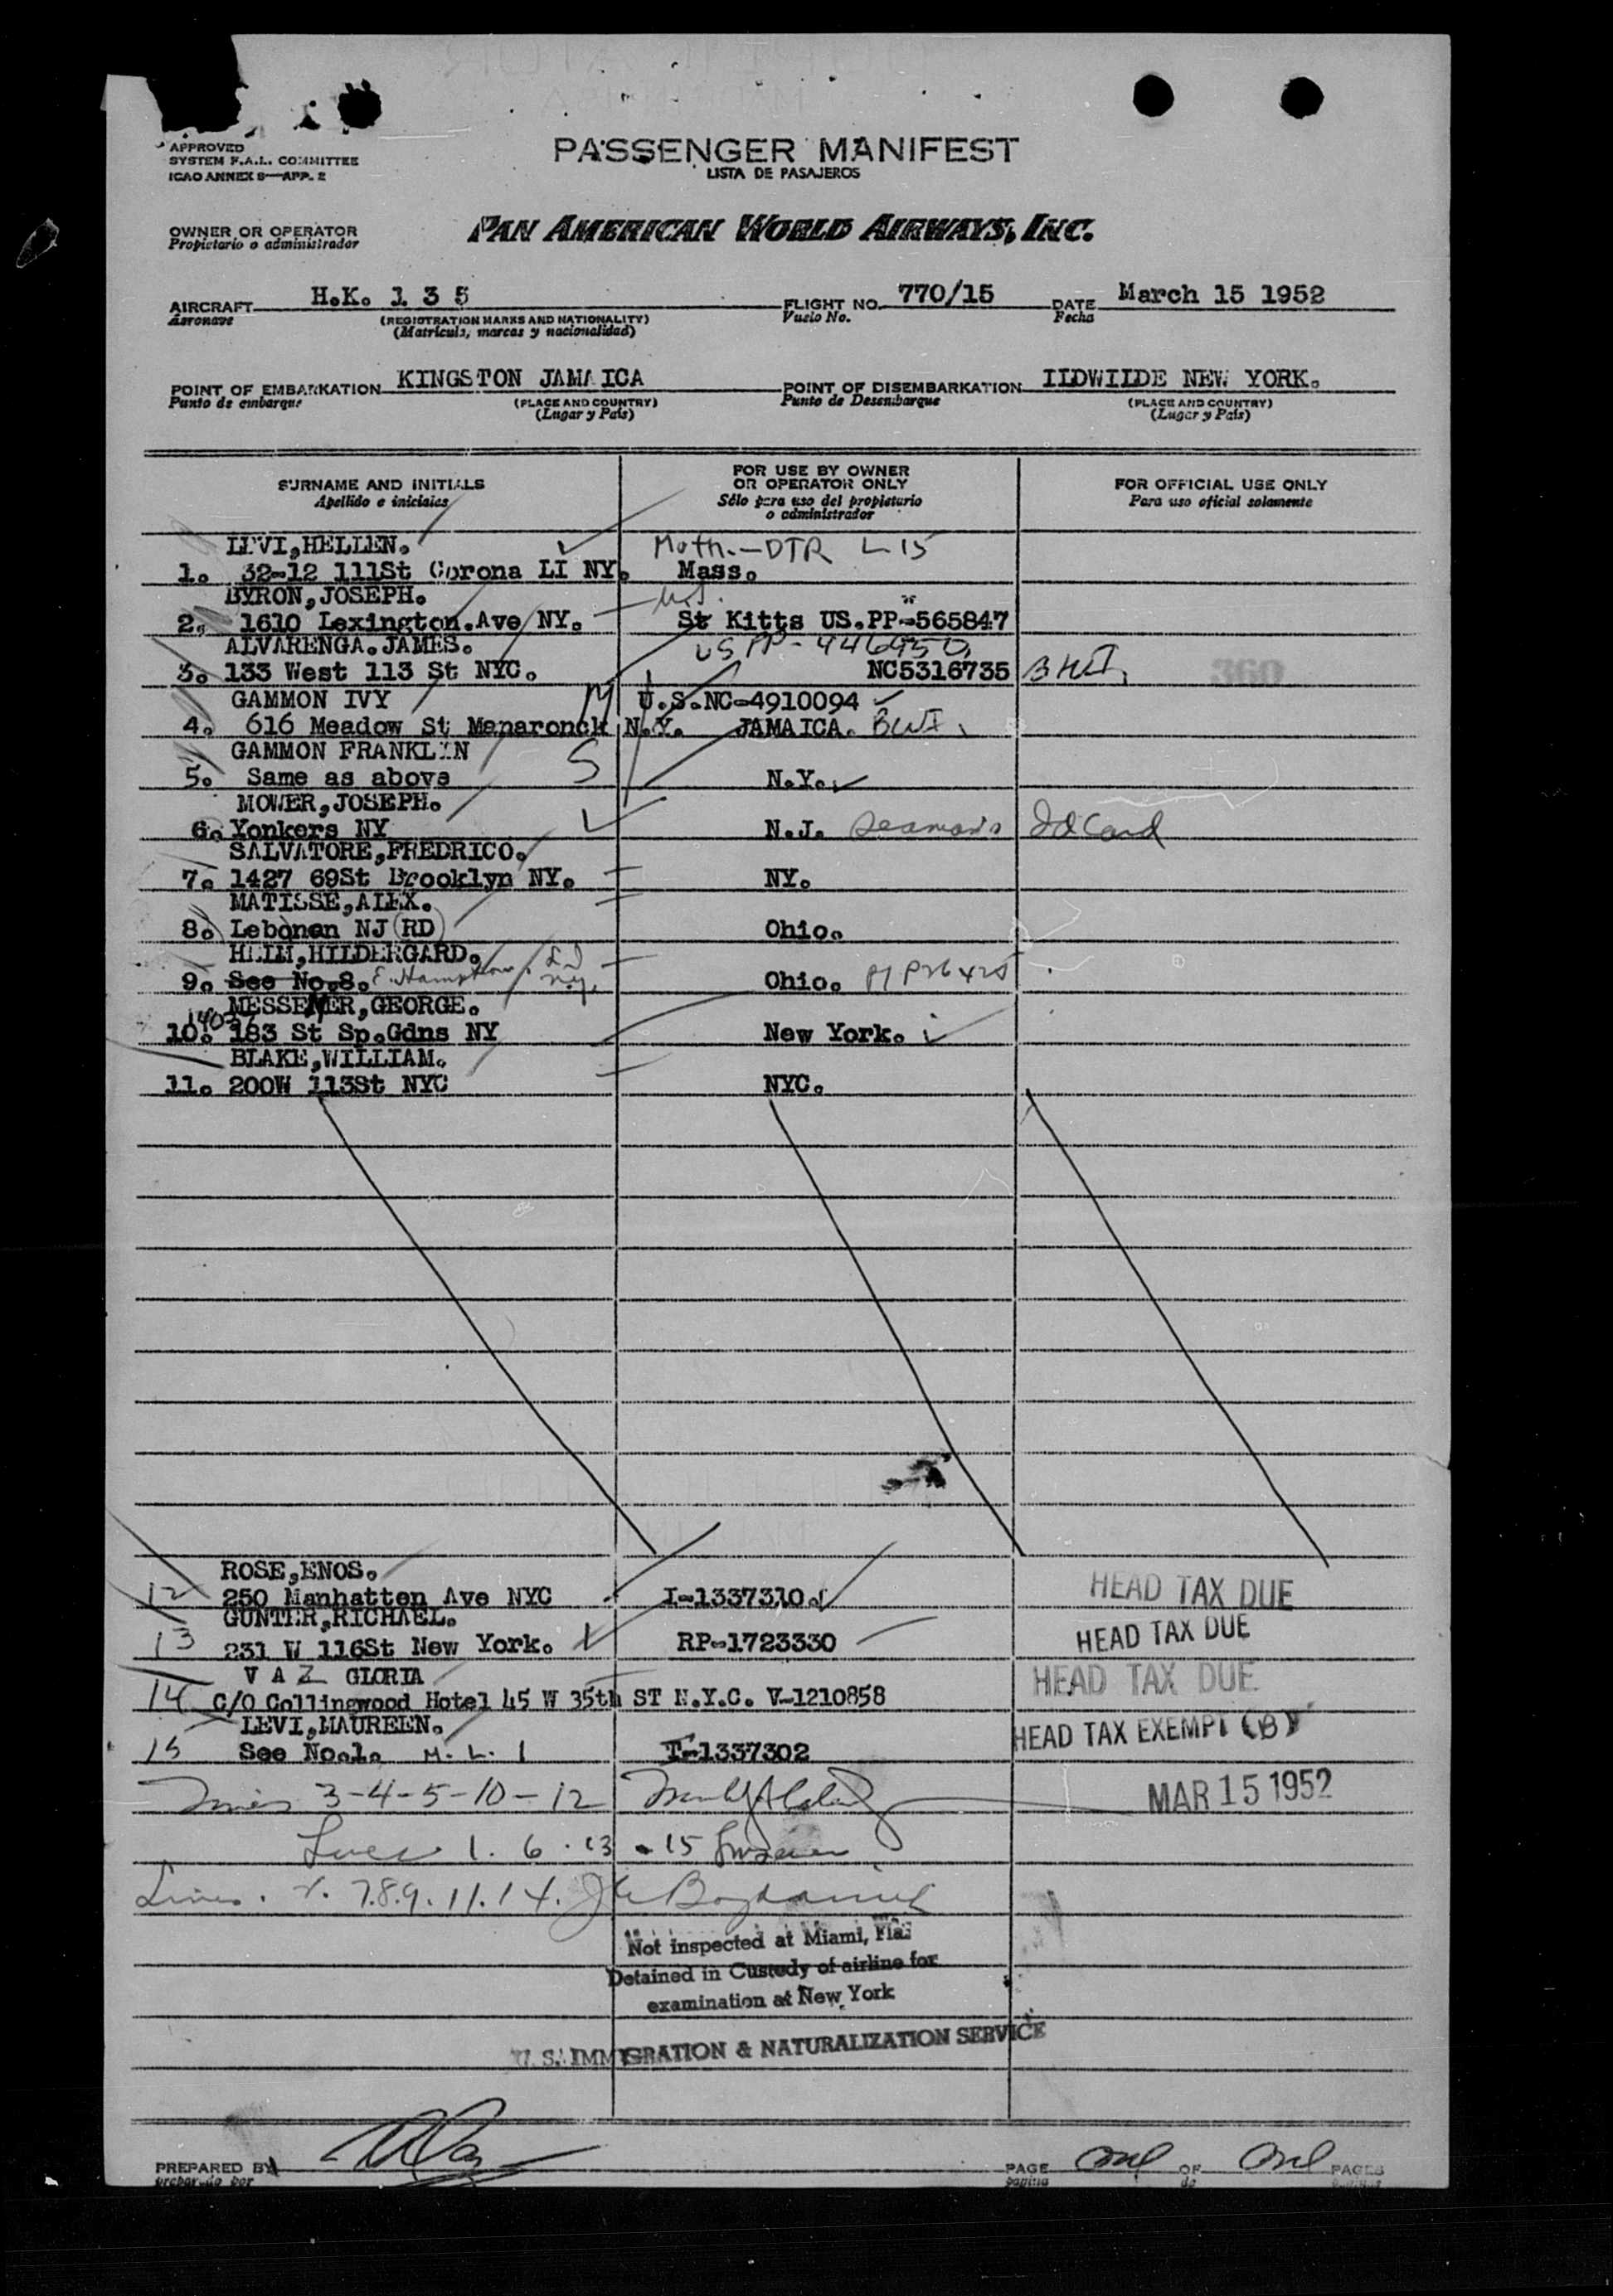 APPROVED
SYSTEM F.A.L. COMMITTEE
ICAO ANNEX 9—APP. 2
PASSENGER MANIFEST
LISTA DE PASAJEROS
OWNER OR OPERATOR
Propietario o administrador
PAN AMERICAN WORLD AIRWAYS, INC.
AIRCRAFT H.K. 1 3 5 FLIGHT NO. 770/15 DATE March 15 1952
Aeronave (REGISTRATION MARKS AND NATIONALITY) Vuelo No. Fecha
(Matricula, marcas y nacionalidad)
POINT OF EMBARKATION KINGSTON JAMAICA POINT OF DISEMBARKATION IIDWIIDE NEW YORK.
Punto de embarque (PLACE AND COUNTRY) Punto de Desembarque (PLACE AND COUNTRY)
(Lugar y País) (Lugar y País)
SURNAME AND INITIALS FOR USE BY OWNER OR OPERATOR ONLY FOR OFFICIAL USE ONLY
Apellido e iniciales Sólo para uso del propietario o administrador Para uso oficial solamente
LEVI,HELLEN. Moth.—DTR L 15
1. 32-12 111St Corona LI NY. Mass.
BYRON,JOSEPH. U.S.
2. 1610 Lexington.Ave NY. St Kitts US.PP-565847
ALVARENGA.JAMES. US PP-446950
3. 133 West 113 St NYC. NC5316735 BWI. 360
GAMMON IVY M U.S.NC-4910094
4. 616 Meadow St Manaronck N.Y. JAMAICA. BWI.
GAMMON FRANKLIN S
5. Same as above N.Y.
MOWER,JOSEPH.
6. Yonkers NY N.J. Seaman's Id Card
SALVATORE,FREDRICO.
7. 1427 69St Brooklyn NY. NY.
MATISSE,ALEX.
8. Lebonan NJ (RD) Ohio.
HEIM,HILDERGARD. L I
9. See No.8. E. Hampton N.Y. Ohio.
MESSENER,GEORGE.
10. 183 St Sp.Gdns NY New York.
BLAKE,WILLIAM.
11. 200W 113St NYC NYC.
ROSE,ENOS.
12 250 Manhatten Ave NYC I-1337310. HEAD TAX DUE
GUNTER,RICHAEL.
13 231 W 116St New York. RP-1723330 HEAD TAX DUE
V A Z GLORIA
14 C/O Collingwood Hotel 45 W 35th ST N.Y.C. V-1210858 HEAD TAX DUE
LEVI,MAUREEN.
15 See No.1. M. L. 1 T-1337302 HEAD TAX EXEMPT (B)
Lines 3-4-5-10-12 MAR 15 1952
Lines 1. 6. 13 - 15
Lines. 2. 7.8.9.11.14.
Not inspected at Miami, Fla.
Detained in Custody of airline for
examination at New York
U. S. IMMIGRATION & NATURALIZATION SERVICE
PREPARED BY PAGE one OF one PAGES
preparado por pagina de paginas